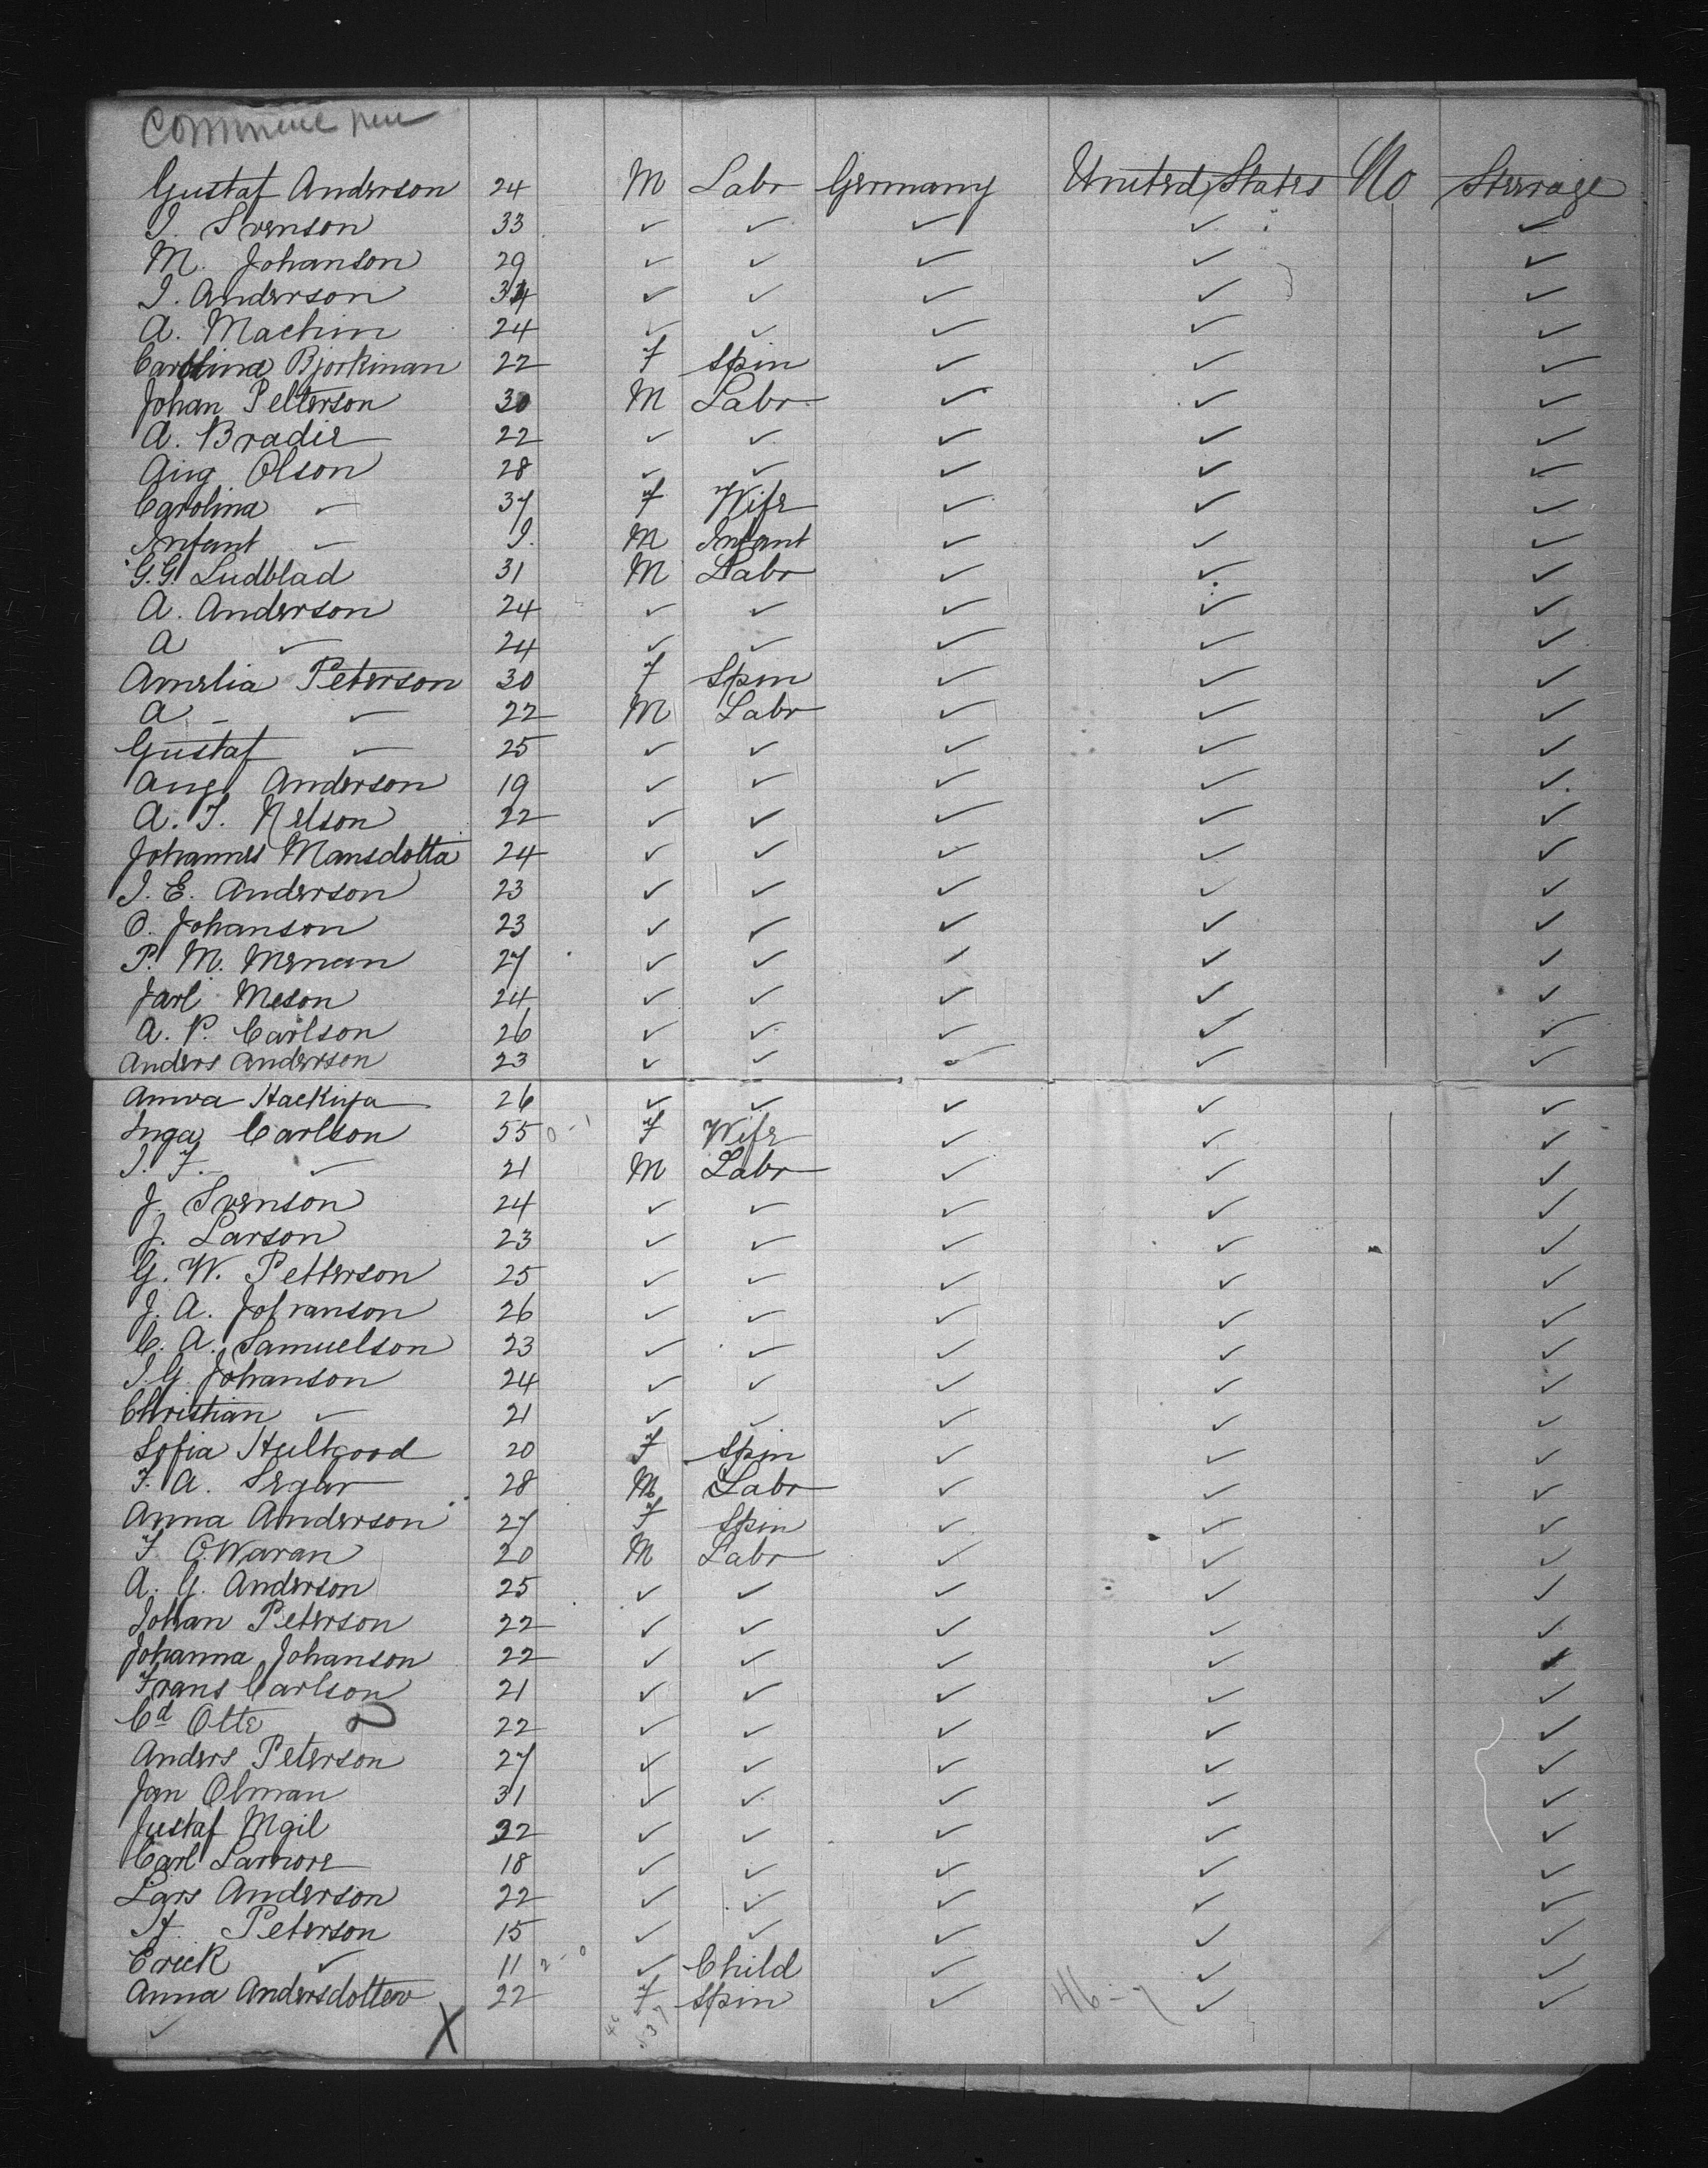 Commence
Gustaf Anderson 24 M Labr Germany United States No Steerage
J. Svenson 33 ✓ ✓ ✓ ✓ ✓
M. Johanson 29 ✓ ✓ ✓ ✓ ✓
J. Anderson 34 ✓ ✓ ✓ ✓ ✓
A. Machin 24 ✓ ✓ ✓ ✓ ✓
Carolina Bjorkinan 22 F Spin ✓ ✓ ✓
Johan Pelterson 30 M Labr ✓ ✓ ✓
A. Bradie 22 ✓ ✓ ✓ ✓ ✓
Aug Olson 28 ✓ ✓ ✓ ✓ ✓
Carolina ✓ 37 F Wife ✓ ✓ ✓
Infant ✓ M Infant ✓ ✓ ✓
G. G. Ludblad 31 M Labr ✓ ✓ ✓
A. Anderson 24 ✓ ✓ ✓ ✓ ✓
A ✓ 24 ✓ ✓ ✓ ✓ ✓
Amelia Peterson 30 F Spin ✓ ✓ ✓
A - ✓ 22 M Labr ✓ ✓ ✓
Gustaf ✓ 25 ✓ ✓ ✓ ✓ ✓
Aug Anderson 19 ✓ ✓ ✓ ✓ ✓
A. F. Nelson 22 ✓ ✓ ✓ ✓ ✓
Johannes Mansdotta 24 ✓ ✓ ✓ ✓ ✓
J. E. Anderson 23 ✓ ✓ ✓ ✓ ✓
O. Johanson 23 ✓ ✓ ✓ ✓ ✓
P. M. 27 ✓ ✓ ✓ ✓ ✓
Jarl Meson 24 ✓ ✓ ✓ ✓ ✓
A. P. Carlson 26 ✓ ✓ ✓ ✓ ✓
Anders Anderson 23 ✓ ✓ ✓ ✓ ✓
26 ✓ ✓ ✓ ✓ ✓
Inga Carlson 55 0-1 F Wife ✓ ✓ ✓
J. F. ✓ 21 M Labr ✓ ✓ ✓
J. Svenson 24 ✓ ✓ ✓ ✓ ✓
J. Larson 23 ✓ ✓ ✓ ✓ ✓
G. W. Petterson 25 ✓ ✓ ✓ ✓ ✓
J. A. Johanson 26 ✓ ✓ ✓ ✓ ✓
C. A. Samuelson 23 ✓ ✓ ✓ ✓ ✓
J. G. Johanson 24 ✓ ✓ ✓ ✓ ✓
Christian ✓ 21 ✓ ✓ ✓ ✓ ✓
Sofia Hultgood 20 F Spin ✓ ✓ ✓
F. A. Segar 28 M Labr ✓ ✓ ✓
Anna Anderson 27 F Spin ✓ ✓ ✓
F O. Waran 20 M Labr ✓ ✓ ✓
A. G. Anderson 25 ✓ ✓ ✓ ✓ ✓
Johan Peterson 22 ✓ ✓ ✓ ✓ ✓
Johanna Johanson 22 ✓ ✓ ✓ ✓ ✓
Frans Carlson 21 ✓ ✓ ✓ ✓ ✓
Cd Otte 22 ✓ ✓ ✓ ✓ ✓
Anders Peterson 27 ✓ ✓ ✓ ✓ ✓
Jan Olman 31 ✓ ✓ ✓ ✓ ✓
Justaf Mgil 22 ✓ ✓ ✓ ✓ ✓
Carl Lamore 18 ✓ ✓ ✓ ✓ ✓
Lars Anderson 22 ✓ ✓ ✓ ✓ ✓
H. Peterson 15 ✓ ✓ ✓ ✓ ✓
Ereck ✓ 11 2-0 ✓ Child ✓ ✓ ✓
Anna Andersdotter 22 F Spin ✓ 46-7 ✓ ✓
✓ X